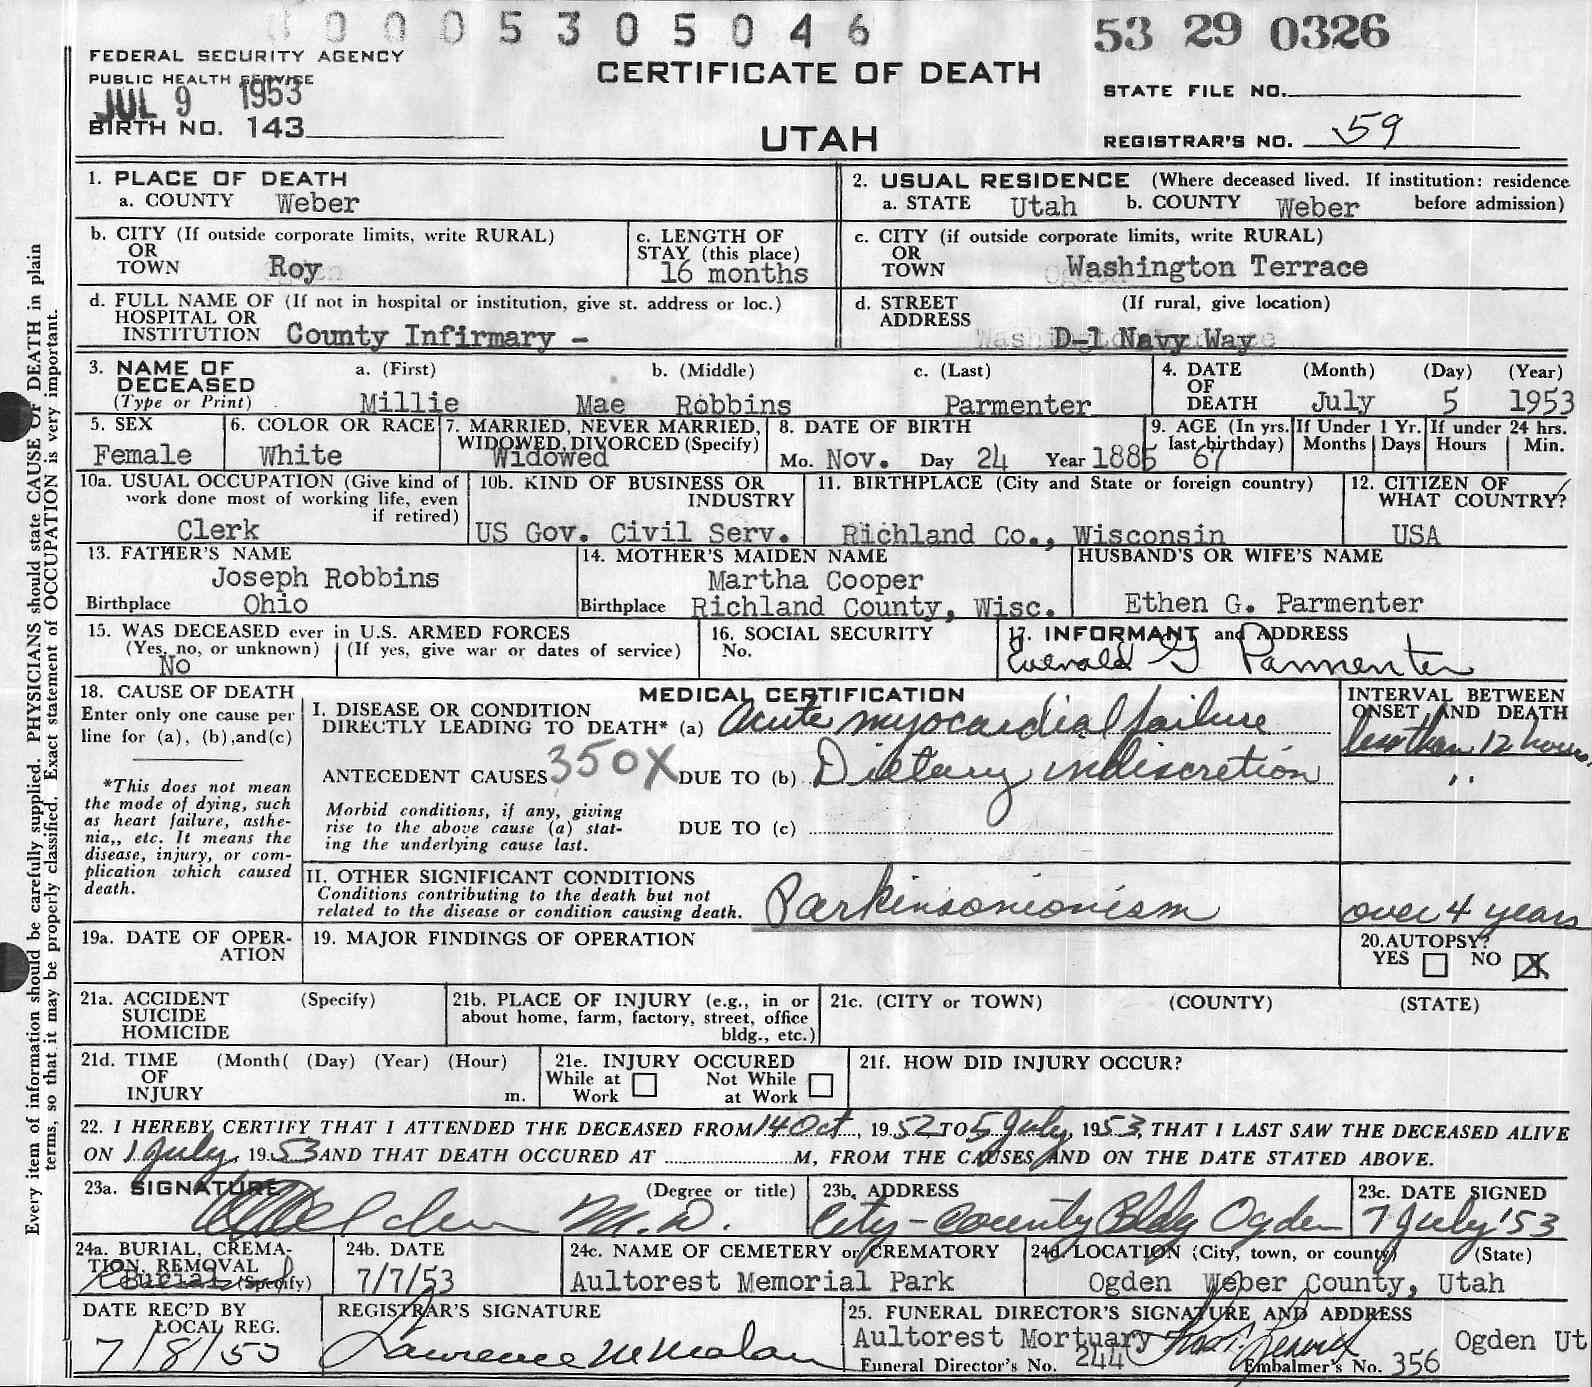 0005305046
53 29 0326
FEDERAL SECURITY AGENCY
PUBLIC HEALTH SERVICE
JUL 9 1953
BIRTH NO. 143
CERTIFICATE OF DEATH
UTAH
STATE FILE NO.
REGISTRAR'S NO. 59
Every item of information should be carefully supplied. PHYSICIANS should state CAUSE OF DEATH in plain
terms, so that it may be properly classified. Exact statement of OCCUPATION is very important.
1. PLACE OF DEATH
a. COUNTY Weber
2. USUAL RESIDENCE (Where deceased lived. If institution: residence
a. STATE Utah b. COUNTY Weber before admission)
b. CITY (If outside corporate limits, write RURAL)
OR
TOWN Roy
c. LENGTH OF
STAY (this place)
16 months
c. CITY (if outside corporate limits, write RURAL)
OR
TOWN Washington Terrace
d. FULL NAME OF (If not in hospital or institution, give st. address or loc.)
HOSPITAL OR
INSTITUTION County Infirmary -
d. STREET (If rural, give location)
ADDRESS D-1 Navy Way
3. NAME OF a. (First) b. (Middle) c. (Last)
DECEASED
(Type or Print) Millie Mae Robbins Parmenter
4. DATE (Month) (Day) (Year)
OF
DEATH July 5 1953
5. SEX
Female
6. COLOR OR RACE
White
7. MARRIED, NEVER MARRIED,
WIDOWED, DIVORCED (Specify)
Widowed
8. DATE OF BIRTH
Mo. Nov. Day 24 Year 1885
9. AGE (In yrs. If Under 1 Yr. If under 24 hrs.
last birthday) Months Days Hours Min.
67
10a. USUAL OCCUPATION (Give kind of
work done most of working life, even
if retired)
Clerk
10b. KIND OF BUSINESS OR
INDUSTRY
US Gov. Civil Serv.
11. BIRTHPLACE (City and State or foreign country)
Richland Co., Wisconsin
12. CITIZEN OF
WHAT COUNTRY?
USA
13. FATHER'S NAME
Joseph Robbins
Birthplace Ohio
14. MOTHER'S MAIDEN NAME
Martha Cooper
Birthplace Richland County, Wisc.
HUSBAND'S OR WIFE'S NAME
Ethen G. Parmenter
15. WAS DECEASED ever in U.S. ARMED FORCES
(Yes, no, or unknown) (If yes, give war or dates of service)
No
16. SOCIAL SECURITY
No.
17. INFORMANT and ADDRESS
Everald G Parmenter
18. CAUSE OF DEATH
Enter only one cause per
line for (a), (b),and(c)
*This does not mean
the mode of dying, such
as heart failure, asthe-
nia,, etc. It means the
disease, injury, or com-
plication which caused
death.
MEDICAL CERTIFICATION
I. DISEASE OR CONDITION
DIRECTLY LEADING TO DEATH* (a) Acute myocardial failure
ANTECEDENT CAUSES 350X DUE TO (b) Dietary indiscretion
Morbid conditions, if any, giving
rise to the above cause (a) stat-
ing the underlying cause last.
DUE TO (c)
II. OTHER SIGNIFICANT CONDITIONS
Conditions contributing to the death but not
related to the disease or condition causing death.
Parkinsonionism
INTERVAL BETWEEN
ONSET AND DEATH
less than 12 hours
"
over 4 years
19a. DATE OF OPER-
ATION
19. MAJOR FINDINGS OF OPERATION
20. AUTOPSY?
YES NO X
21a. ACCIDENT (Specify)
SUICIDE
HOMICIDE
21b. PLACE OF INJURY (e.g., in or
about home, farm, factory, street, office
bldg., etc.)
21c. (CITY or TOWN) (COUNTY) (STATE)
21d. TIME (Month( (Day) (Year) (Hour)
OF
INJURY m.
21e. INJURY OCCURED
While at Not While
Work at Work
21f. HOW DID INJURY OCCUR?
22. I HEREBY CERTIFY THAT I ATTENDED THE DECEASED FROM 14 Oct, 1952 TO 5 July, 1953, THAT I LAST SAW THE DECEASED ALIVE
ON 1 July, 1953 AND THAT DEATH OCCURED AT M, FROM THE CAUSES AND ON THE DATE STATED ABOVE.
23a. SIGNATURE (Degree or title)
M.D.
23b. ADDRESS
City-County Bldg Ogden
23c. DATE SIGNED
7 July '53
24a. BURIAL, CREMA-
TION, REMOVAL
Burial (Specify)
24b. DATE
7/7/53
24c. NAME OF CEMETERY or CREMATORY
Aultorest Memorial Park
24d. LOCATION (City, town, or county) (State)
Ogden Weber County, Utah
DATE REC'D BY
LOCAL REG.
7/8/53
REGISTRAR'S SIGNATURE
Lawrence M Malan
25. FUNERAL DIRECTOR'S SIGNATURE AND ADDRESS
Aultorest Mortuary Ogden Ut
Funeral Director's No. 244 Embalmer's No. 356